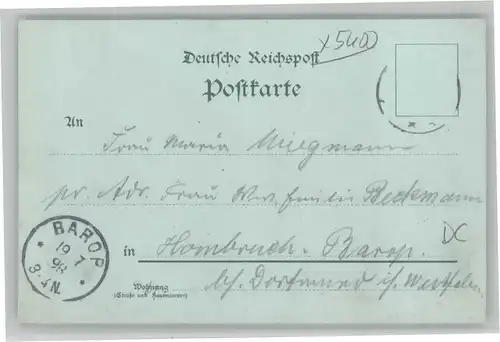 x5400
Deutsche Reichspost
Postkarte
An
Frau Maria Wiegmann
pr. Adr. Frau Wwe Emilie Beckmann
DC
in Hombruch-Barop.
Wohnung
(Straße und Hausnummer)
bh. Dortmund i/ Westfalen
BAROP
19 7
98
3-4N.